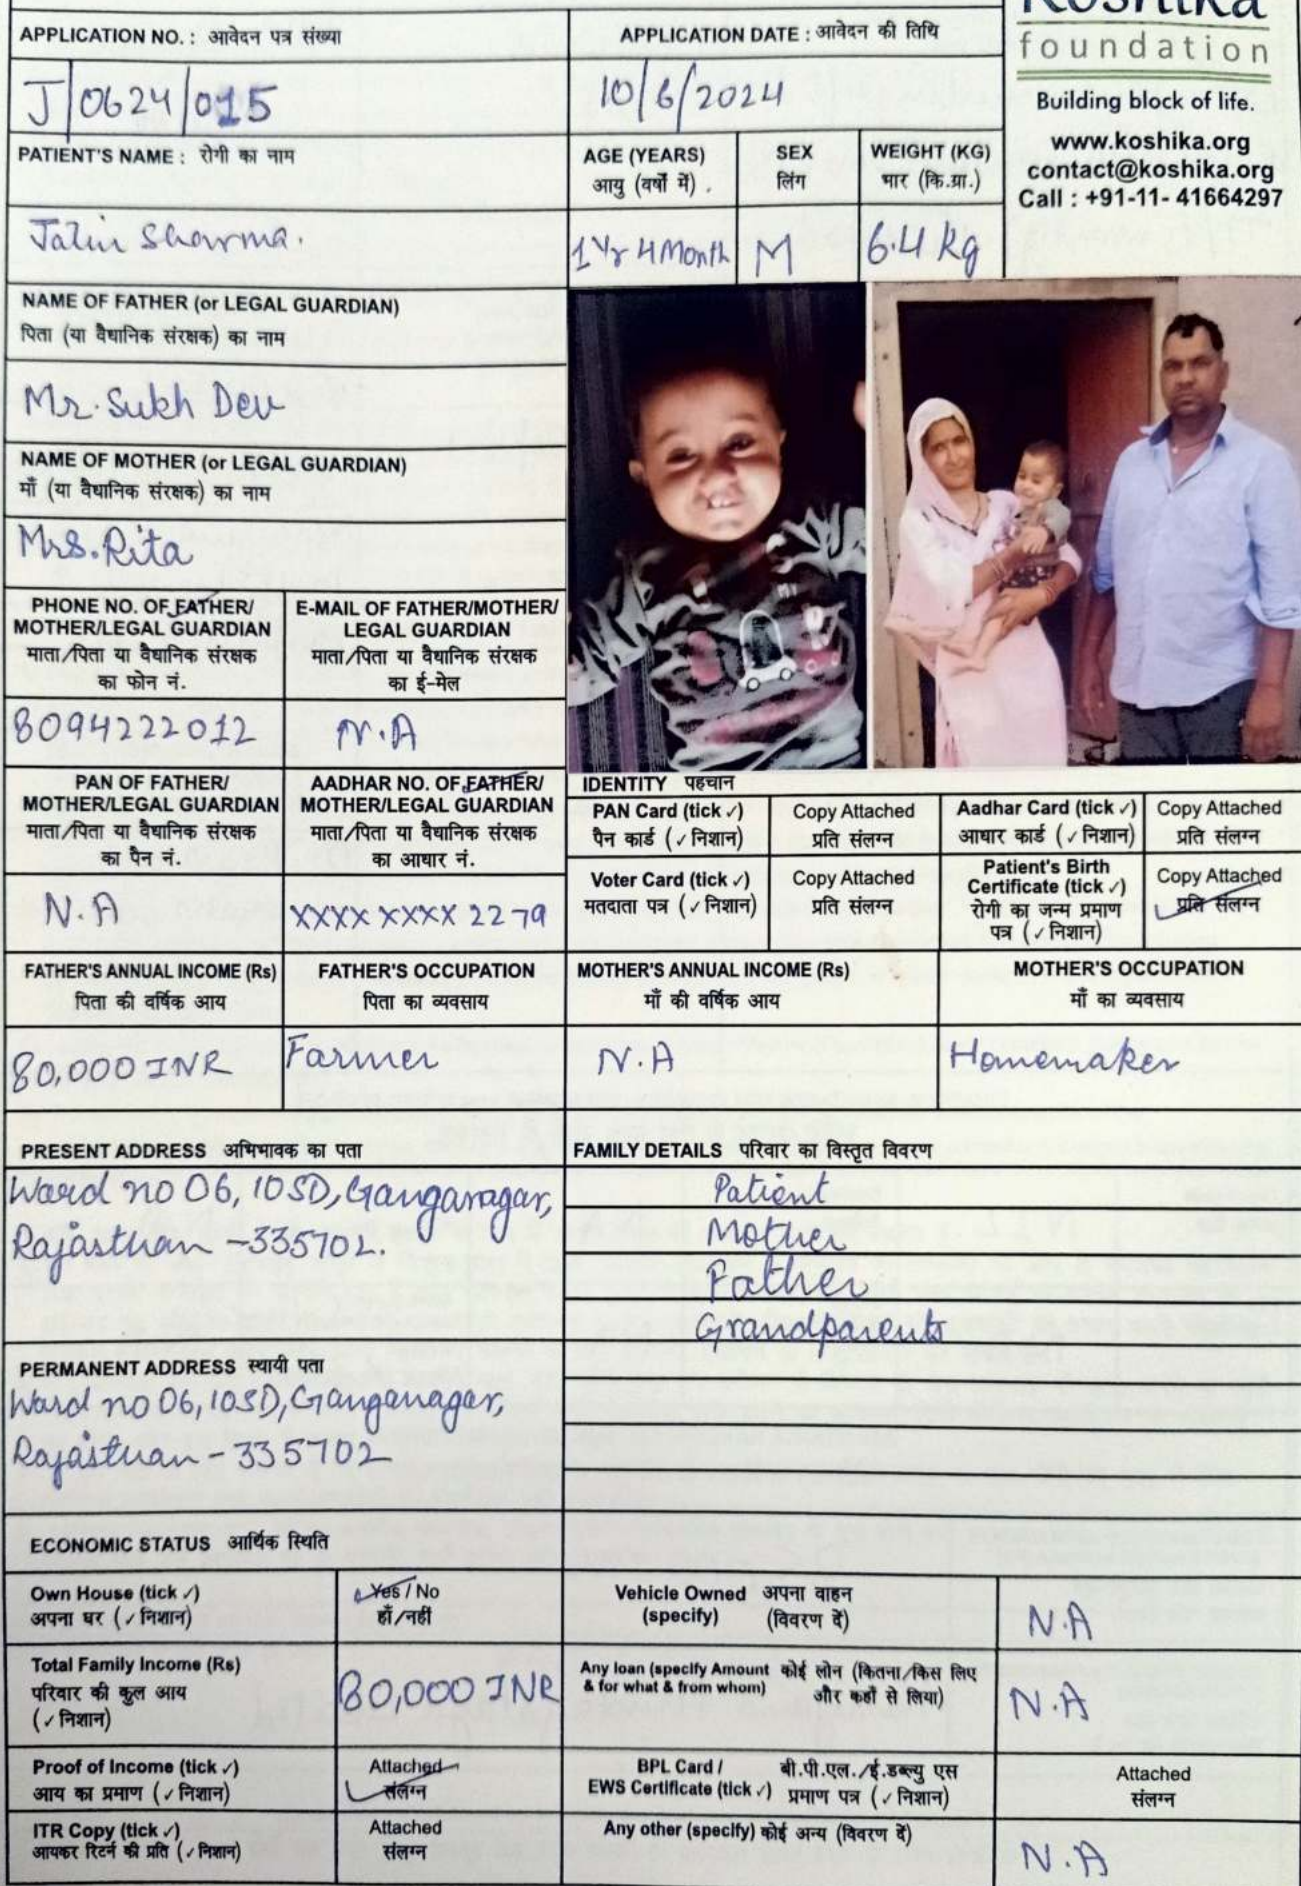 Koshika
foundation
Building block of life.
www.koshika.org
contact@koshika.org
Call : +91-11- 41664297
APPLICATION NO. : आवेदन पत्र संख्या
APPLICATION DATE : आवेदन की तिथि
J/0624/015
10/6/2024
PATIENT'S NAME : रोगी का नाम
AGE (YEARS)
आयु (वर्षों में) .
SEX
लिंग
WEIGHT (KG)
भार (कि.ग्रा.)
Jatin Sharma.
1 Yr 4 Month
M
6.4 kg
NAME OF FATHER (or LEGAL GUARDIAN)
पिता (या वैधानिक संरक्षक) का नाम
Mr. Sukh Dev
NAME OF MOTHER (or LEGAL GUARDIAN)
माँ (या वैधानिक संरक्षक) का नाम
Mrs. Rita
PHONE NO. OF FATHER/
MOTHER/LEGAL GUARDIAN
माता/पिता या वैधानिक संरक्षक
का फोन नं.
E-MAIL OF FATHER/MOTHER/
LEGAL GUARDIAN
माता/पिता या वैधानिक संरक्षक
का ई-मेल
8094222012
N.A
PAN OF FATHER/
MOTHER/LEGAL GUARDIAN
माता/पिता या वैधानिक संरक्षक
का पैन नं.
AADHAR NO. OF FATHER/
MOTHER/LEGAL GUARDIAN
माता/पिता या वैधानिक संरक्षक
का आधार नं.
N.A
XXXX XXXX 2279
IDENTITY पहचान
PAN Card (tick ✓)
पैन कार्ड (✓ निशान)
Copy Attached
प्रति संलग्न
Aadhar Card (tick ✓)
आधार कार्ड (✓ निशान)
Copy Attached
प्रति संलग्न
Voter Card (tick ✓)
मतदाता पत्र (✓ निशान)
Copy Attached
प्रति संलग्न
Patient's Birth
Certificate (tick ✓)
रोगी का जन्म प्रमाण
पत्र (✓ निशान)
Copy Attached
प्रति संलग्न
FATHER'S ANNUAL INCOME (Rs)
पिता की वार्षिक आय
FATHER'S OCCUPATION
पिता का व्यवसाय
MOTHER'S ANNUAL INCOME (Rs)
माँ की वार्षिक आय
MOTHER'S OCCUPATION
माँ का व्यवसाय
80,000 INR
Farmer
N.A
Homemaker
PRESENT ADDRESS अभिभावक का पता
Ward no 06, 10SD, Ganganagar,
Rajasthan - 335702.
FAMILY DETAILS परिवार का विस्तृत विवरण
Patient
Mother
Father
Grandparents
PERMANENT ADDRESS स्थायी पता
Ward no 06, 10SD, Ganganagar,
Rajasthan - 335702
ECONOMIC STATUS आर्थिक स्थिति
Own House (tick ✓)
अपना घर (✓ निशान)
Yes / No
हाँ/नहीं
Vehicle Owned अपना वाहन
(specify) (विवरण दें)
N.A
Total Family Income (Rs)
परिवार की कुल आय
(✓ निशान)
80,000 INR
Any loan (specify Amount कोई लोन (कितना/किस लिए
& for what & from whom) और कहाँ से लिया)
N.A
Proof of Income (tick ✓)
आय का प्रमाण (✓ निशान)
Attached
संलग्न
BPL Card / बी.पी.एल./ई.डब्ल्यु एस
EWS Certificate (tick ✓) प्रमाण पत्र (✓ निशान)
Attached
संलग्न
ITR Copy (tick ✓)
आयकर रिटर्न की प्रति (✓ निशान)
Attached
संलग्न
Any other (specify) कोई अन्य (विवरण दें)
N.A